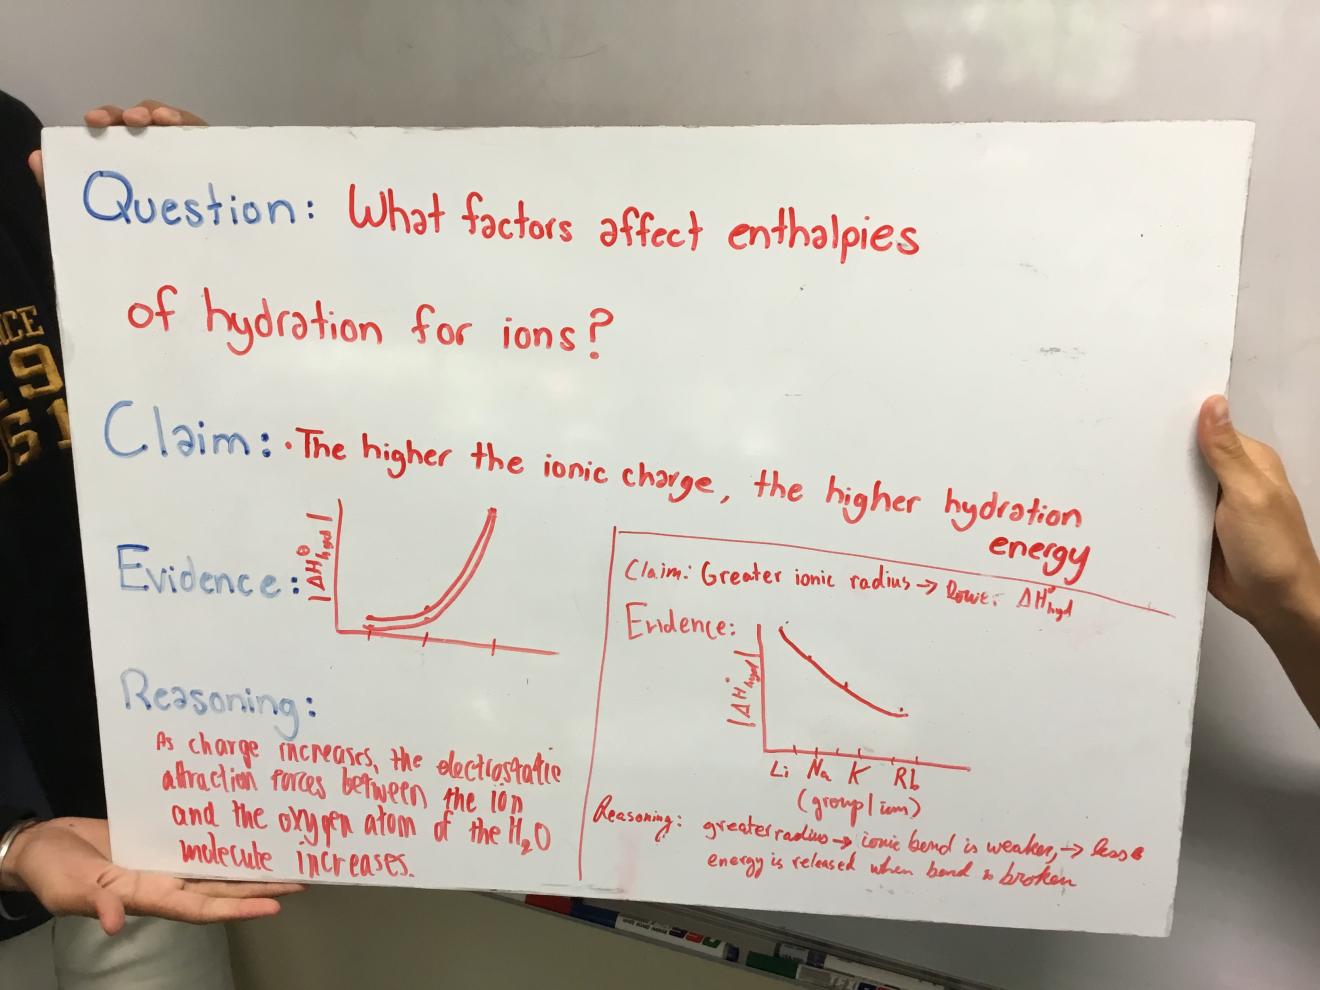 Question: What factors affect enthalpies
of hydration for ions?
Claim: • The higher the ionic charge, the higher hydration
energy
Evidence:
|ΔH°hyd|
Reasoning:
As charge increases, the electrostatic
attraction forces between the ion
and the oxygen atom of the H₂O
molecule increases.
Claim: Greater ionic radius → lower ΔH°hyd
Evidence:
|ΔH°hyd|
Li Na K Rb
(group 1 ions)
Reasoning: greater radius → ionic bond is weaker, → less
energy is released when bond is broken
NCE
19
51